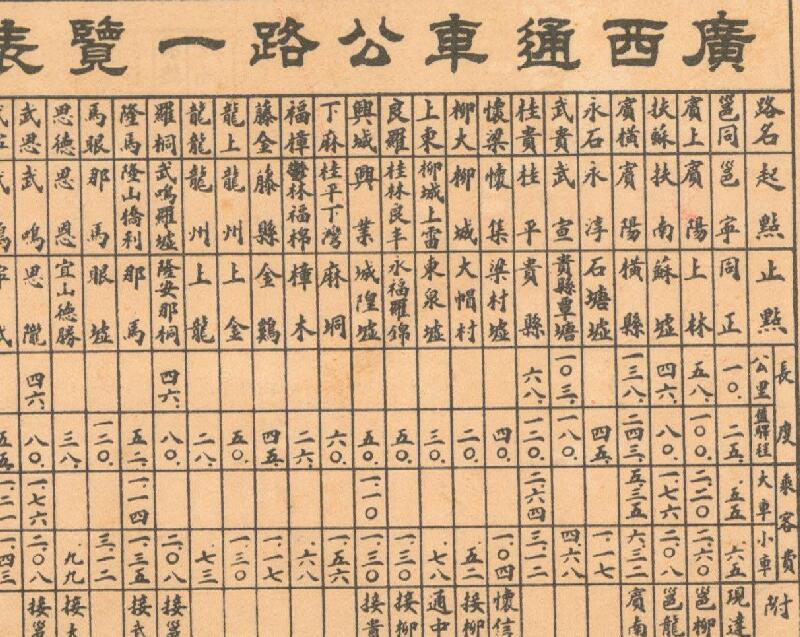 廣西通車公路一覽表
路名 起點 止點 長度 公里 值驛程 乘客費 大車 小車 附
邕同 邕寧 同正 一〇. 二五. .五五 .六五 現達
賓上 賓陽 上林 五八. 一〇〇. 二.二〇 二.六〇 邕柳
扶蘇 扶南 蘇墟 四六. 八〇. 一.七六 二.〇八 邕龍
賓橫 賓陽 橫縣 一三八. 二四三. 五.三五 六.三二 賓南
永石 永淳 石塘墟 四五. 一.一七
武貴 武宣 貴縣覃塘 一〇三. 一八〇. 四.六八
桂貴 桂平 貴縣 六八. 一二〇. 二.六四 三.一二
懷梁 懷集 梁村墟 四〇. 一.〇四 懷信
柳大 柳城 大帽村 二〇. .五二 接柳
上東 柳城上雷 東泉墟 三〇. .七八 通中
良羅 桂林良丰 永福羅錦 五〇. 一.三〇 接柳
興城 興業 城隍墟 五〇. 一.一〇 一.三〇 接貴
下麻 桂平下灣 麻垌 六〇. 一.五六
福樟 鬱林福棉 樟木 二六. .六八
藤金 藤縣 金鷄 四五. 一.一七
龍上 龍州 上金 五〇. 一.三〇
龍龍 龍州 上龍 二八. .七三
羅桐 武鳴羅墟 隆安那桐 四六. 八〇. 二.〇八 接邕
隆馬 隆山橋利 那馬 五二. 一.一四 一.三五 接武
馬眼 那馬 眼墟 一二〇. 三.一二
思德 思恩 宜山德勝 三八. .九九 接
武思 武鳴 思隴 四六. 八〇. 一.七六 二.〇八 接邕
五五. 一.二一 一.四三